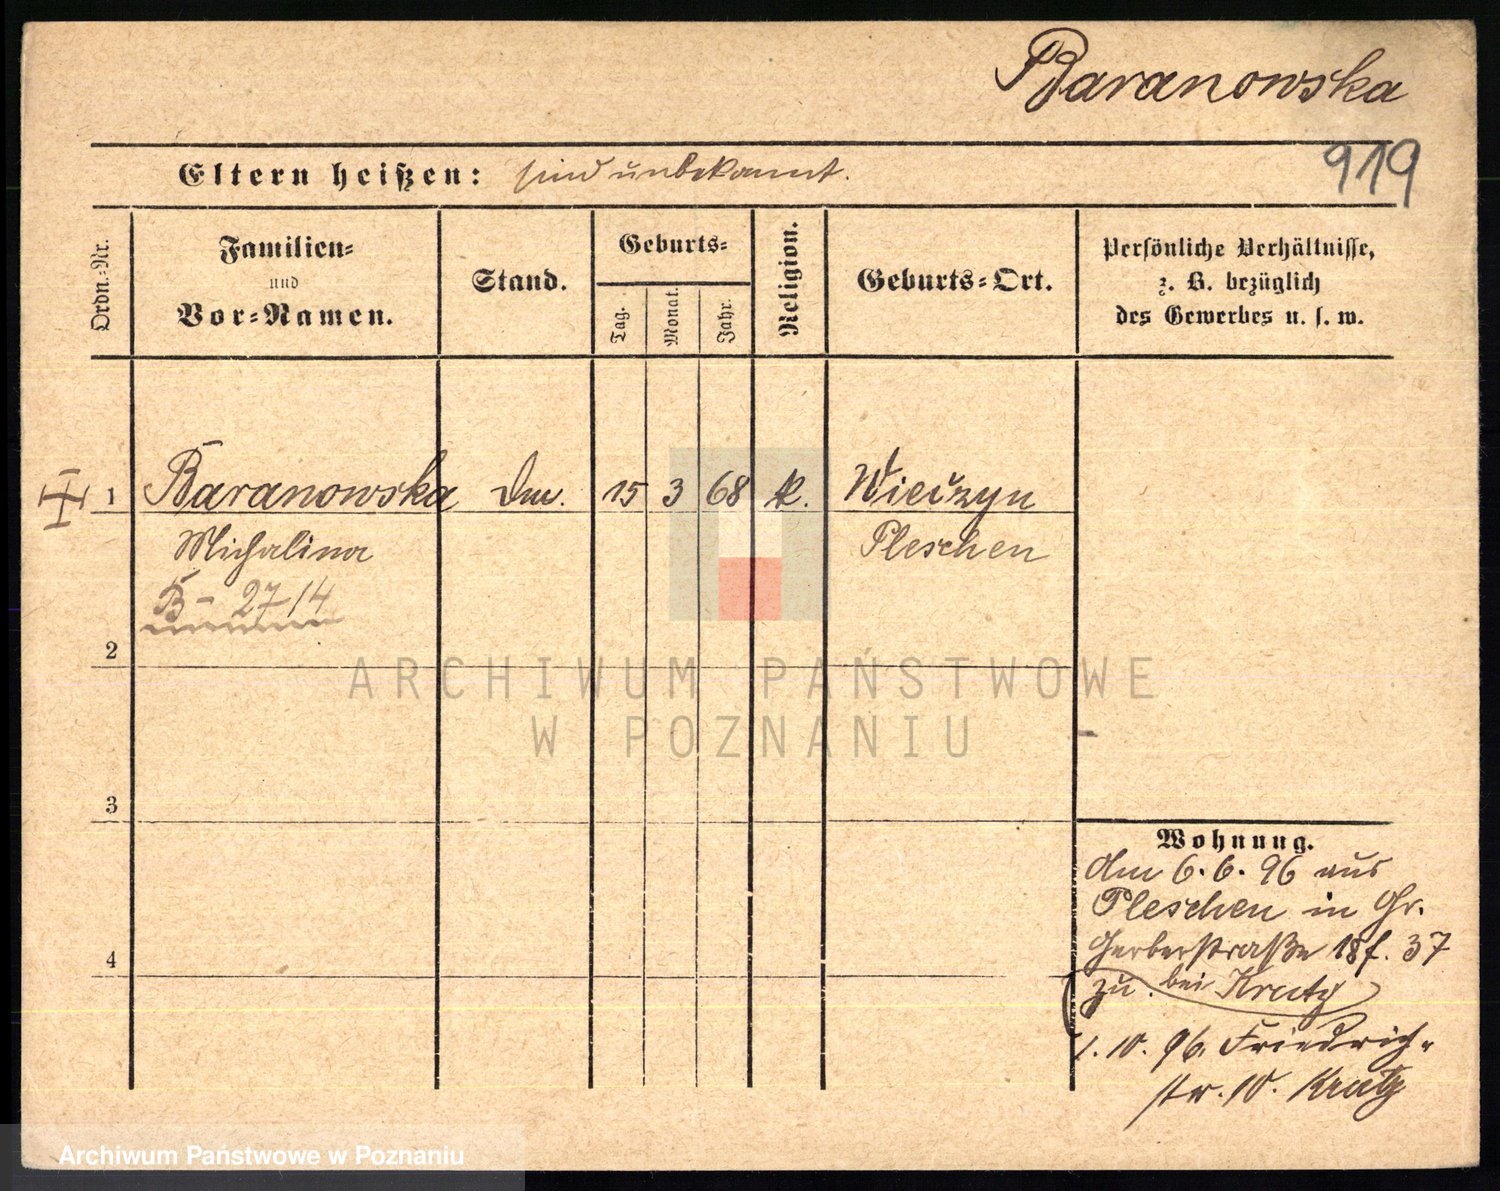 Baranowska
919
Eltern heißen: sind unbekannt.
Ordn.-Nr.
Familien-
und
Vor-Namen.
Stand.
Geburts-
Tag.
Monat.
Jahr.
Religion.
Geburts-Ort.
Persönliche Verhältnisse,
z. B. bezüglich
des Gewerbes u. s. w.
1 Baranowska 15 3 68 k. Wieczyn
Michalina Pleschen
B- 27/4
2
3
4
Wohnung.
Am 6.6.96 aus
Pleschen in Gr.
Gerberstraße 18f. 37
zu. bei Kratz
1.10.96. Friedrich-
str. 10. Kratz
ARCHIWUM PAŃSTWOWE
W POZNANIU
Archiwum Państwowe w Poznaniu